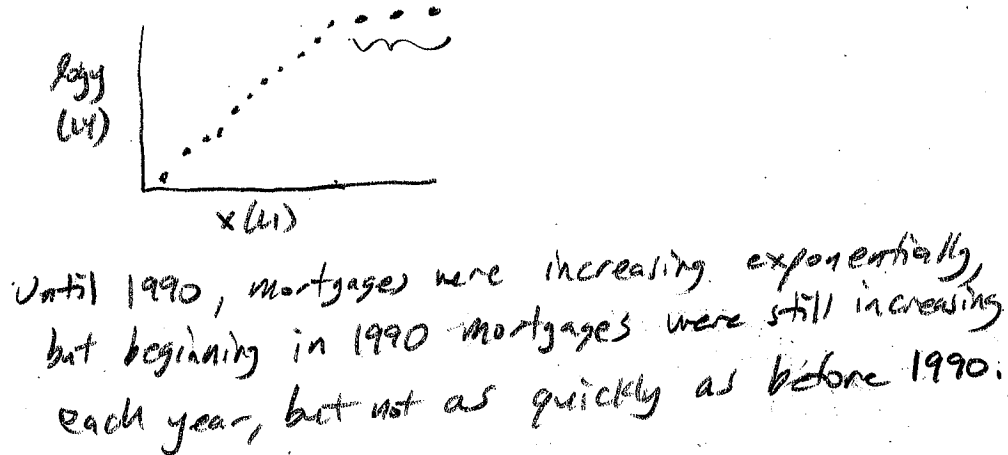 logy
(L4)
x (L1)
Until 1990, mortgages were increasing exponentially,
but beginning in 1990 mortgages were still increasing
each year, but not as quickly as before 1990.